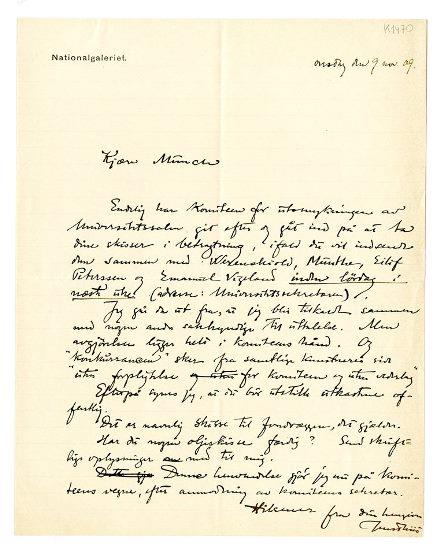 K1470
Nationalgaleriet.
onsdag den 9 nov. 09.
Kjære Munch
Endelig har Komiteen for utsmykningen av
Universitetssalen git efter og gåt ind på at ta
dine skisser i betragtning, ifald du vil indsende
dem sammen med Werenskiold, Munthe, Eilif
Peterssen og Emanuel Vigeland inden lördag i
næste uke (adresse: Universitetssekretæren).
Jeg går da ut fra, at jeg blir tilkaldt sammen
med nogen andre sakkyndige til uttalelse. Men
avgjörelsen ligger helt i komiteens hånd. Og
"konkurrancen" sker fra samtlige kunstneres side
"uten forpligtelse for komiteen og uten vederlag"
Efterpå synes jeg, at du bör utstille utkastene of-
fentlig.
Det er navnlig skisse til fondvæggen, det gjælder.
Har du nogen oljeskisse færdig? Send skrift-
lige oplysninger med til mig.
Denne henvendelse gjör jeg nu på komi-
teens vegne, efter anmodning av komiteens sekretær.
Hilsener fra din hengivne